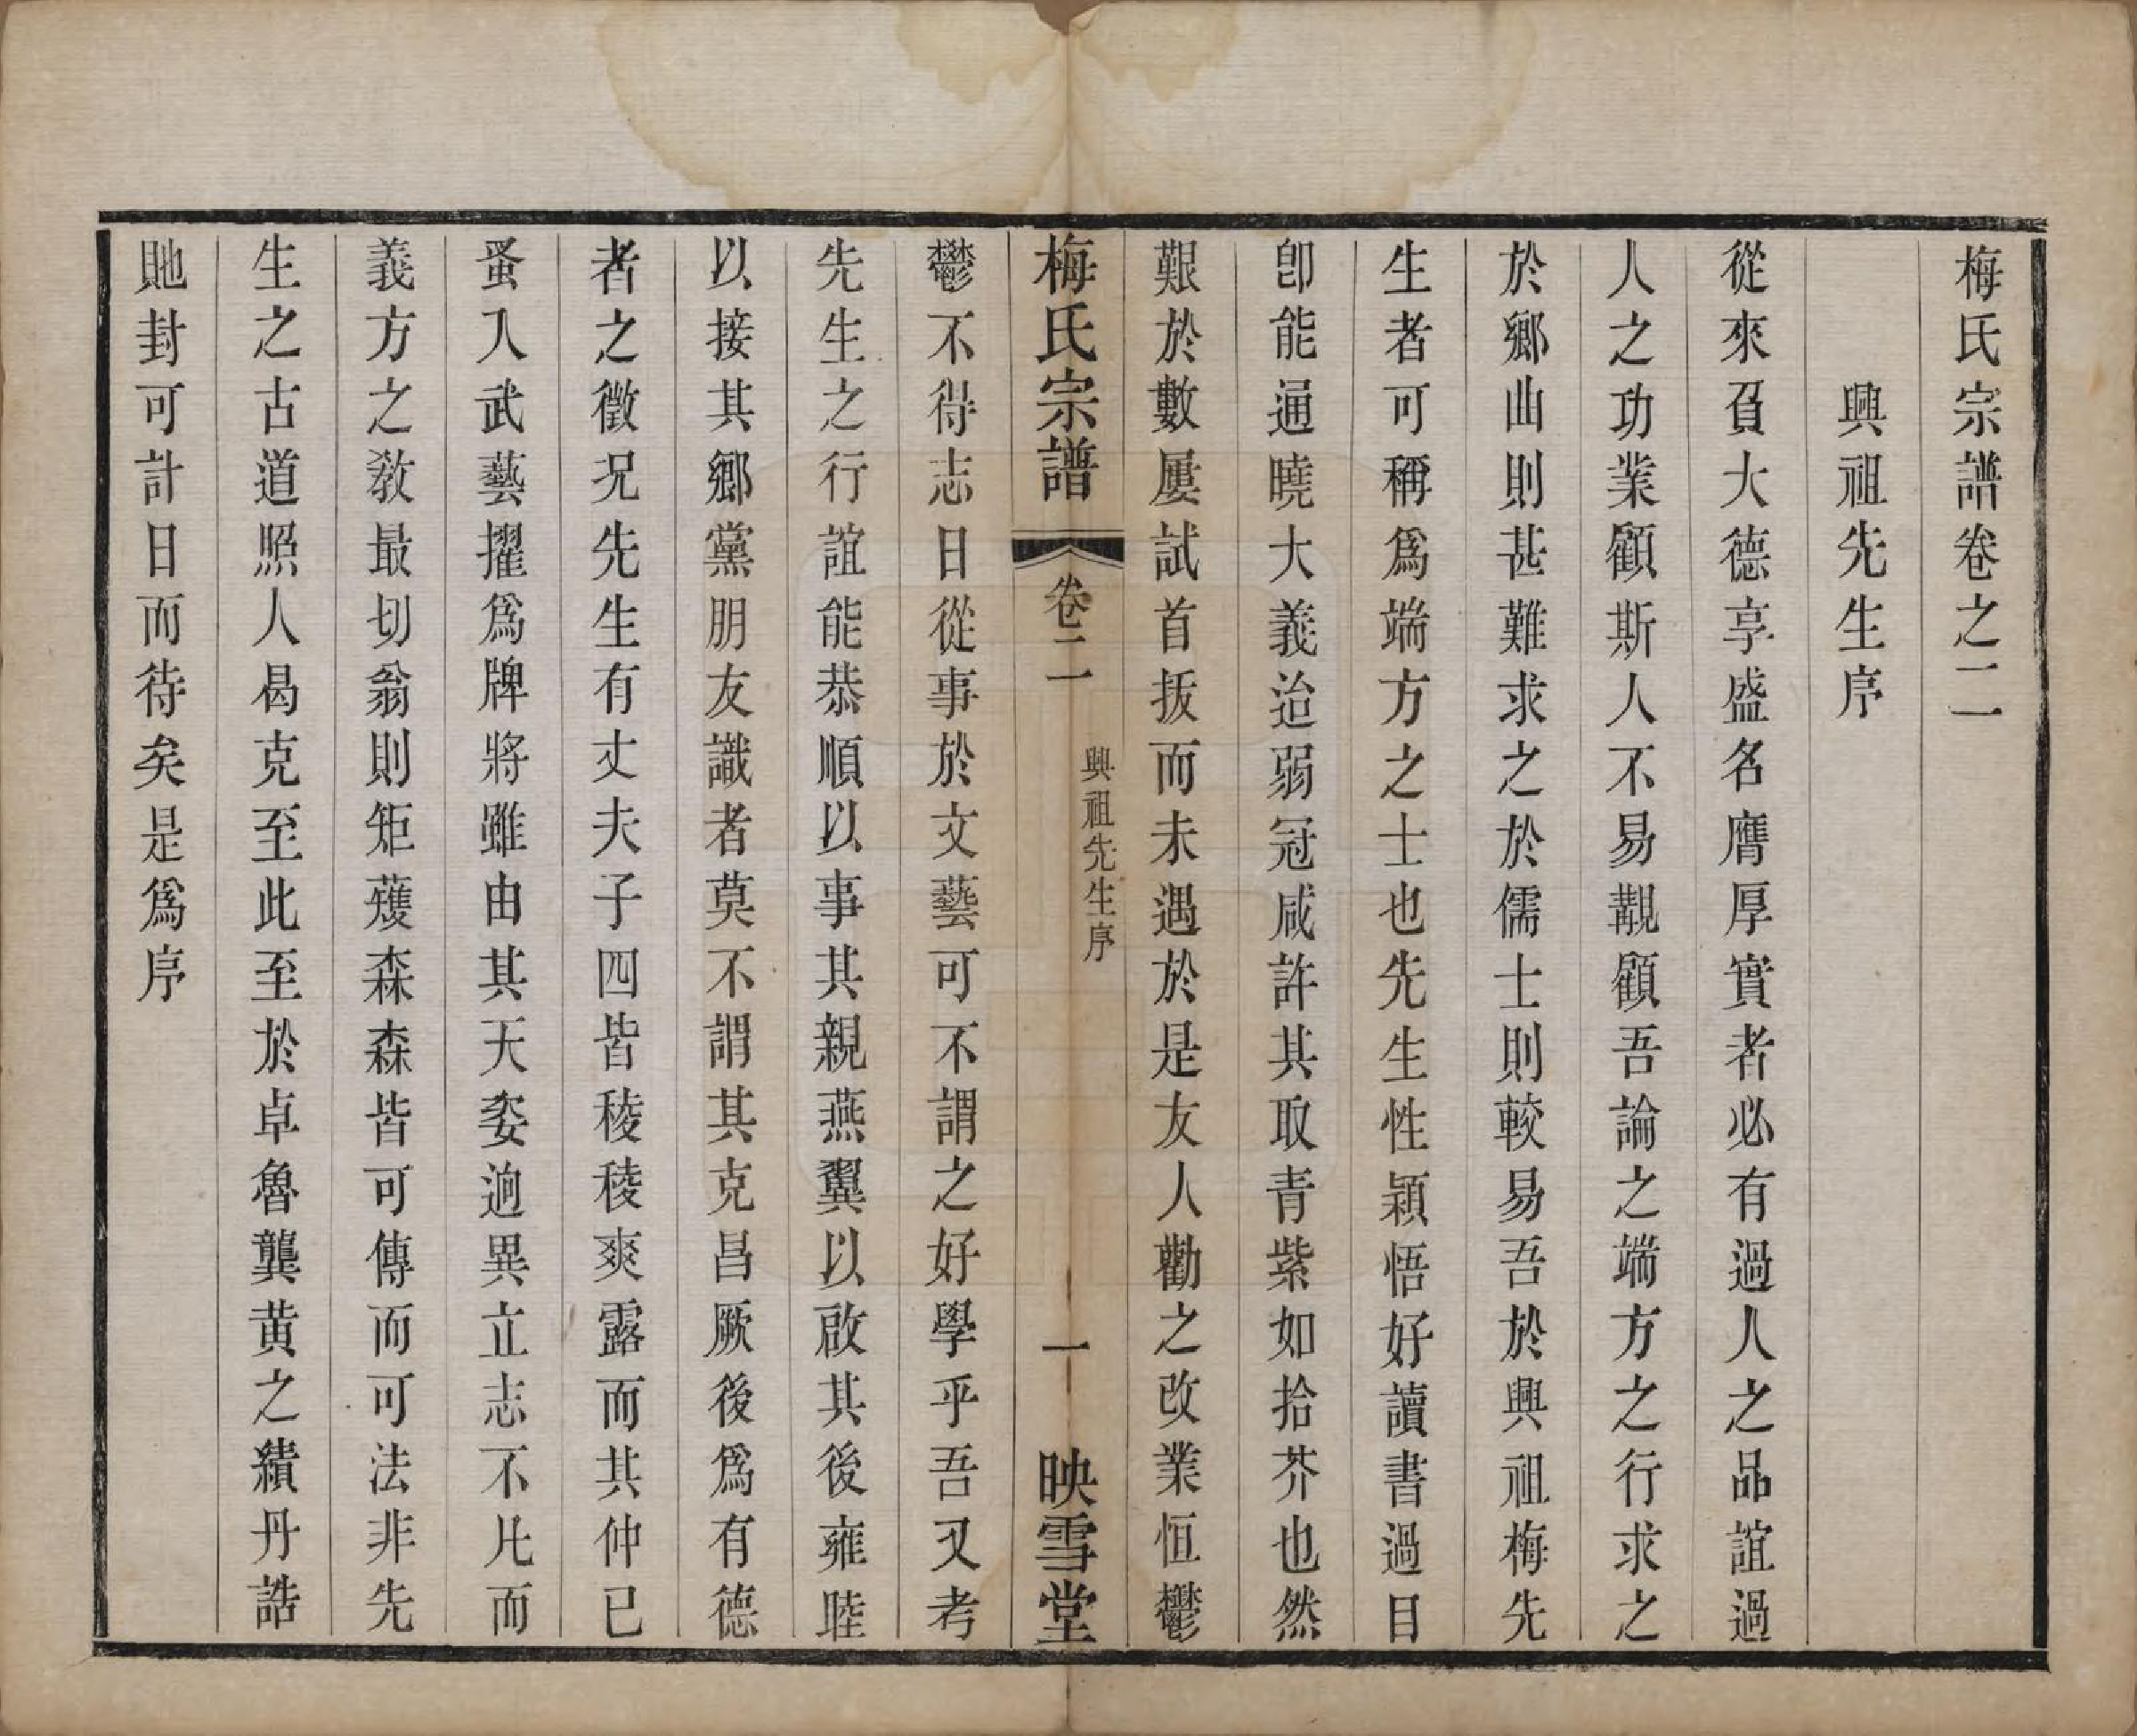 梅氏宗譜卷之二
興祖先生序
從來負大德享盛名膺厚實者必有過人之品誼過
人之功業顧斯人不易覯顧吾論之端方之行求之
於鄉曲則甚難求之於儒士則較易吾於興祖梅先
生者可稱爲端方之士也先生性穎悟好讀書過目
卽能通曉大義迨弱冠咸許其取青紫如拾芥也然
艱於數屢試首拔而未遇於是友人勸之改業恒鬱
梅氏宗譜 卷二 興祖先生序 一 映雪堂
鬱不得志日從事於文藝可不謂之好學乎吾又考
先生之行誼能恭順以事其親燕翼以啟其後雍睦
以接其鄉黨朋友識者莫不謂其克昌厥後爲有德
者之徵况先生有丈夫子四皆稜稜爽露而其仲已
蚤入武藝擢爲牌將雖由其天姿逈異立志不凡而
義方之敎最切翁則矩蒦森森皆可傳而可法非先
生之古道照人曷克至此至於卓魯龔黃之績丹誥
貤封可計日而待矣是爲序